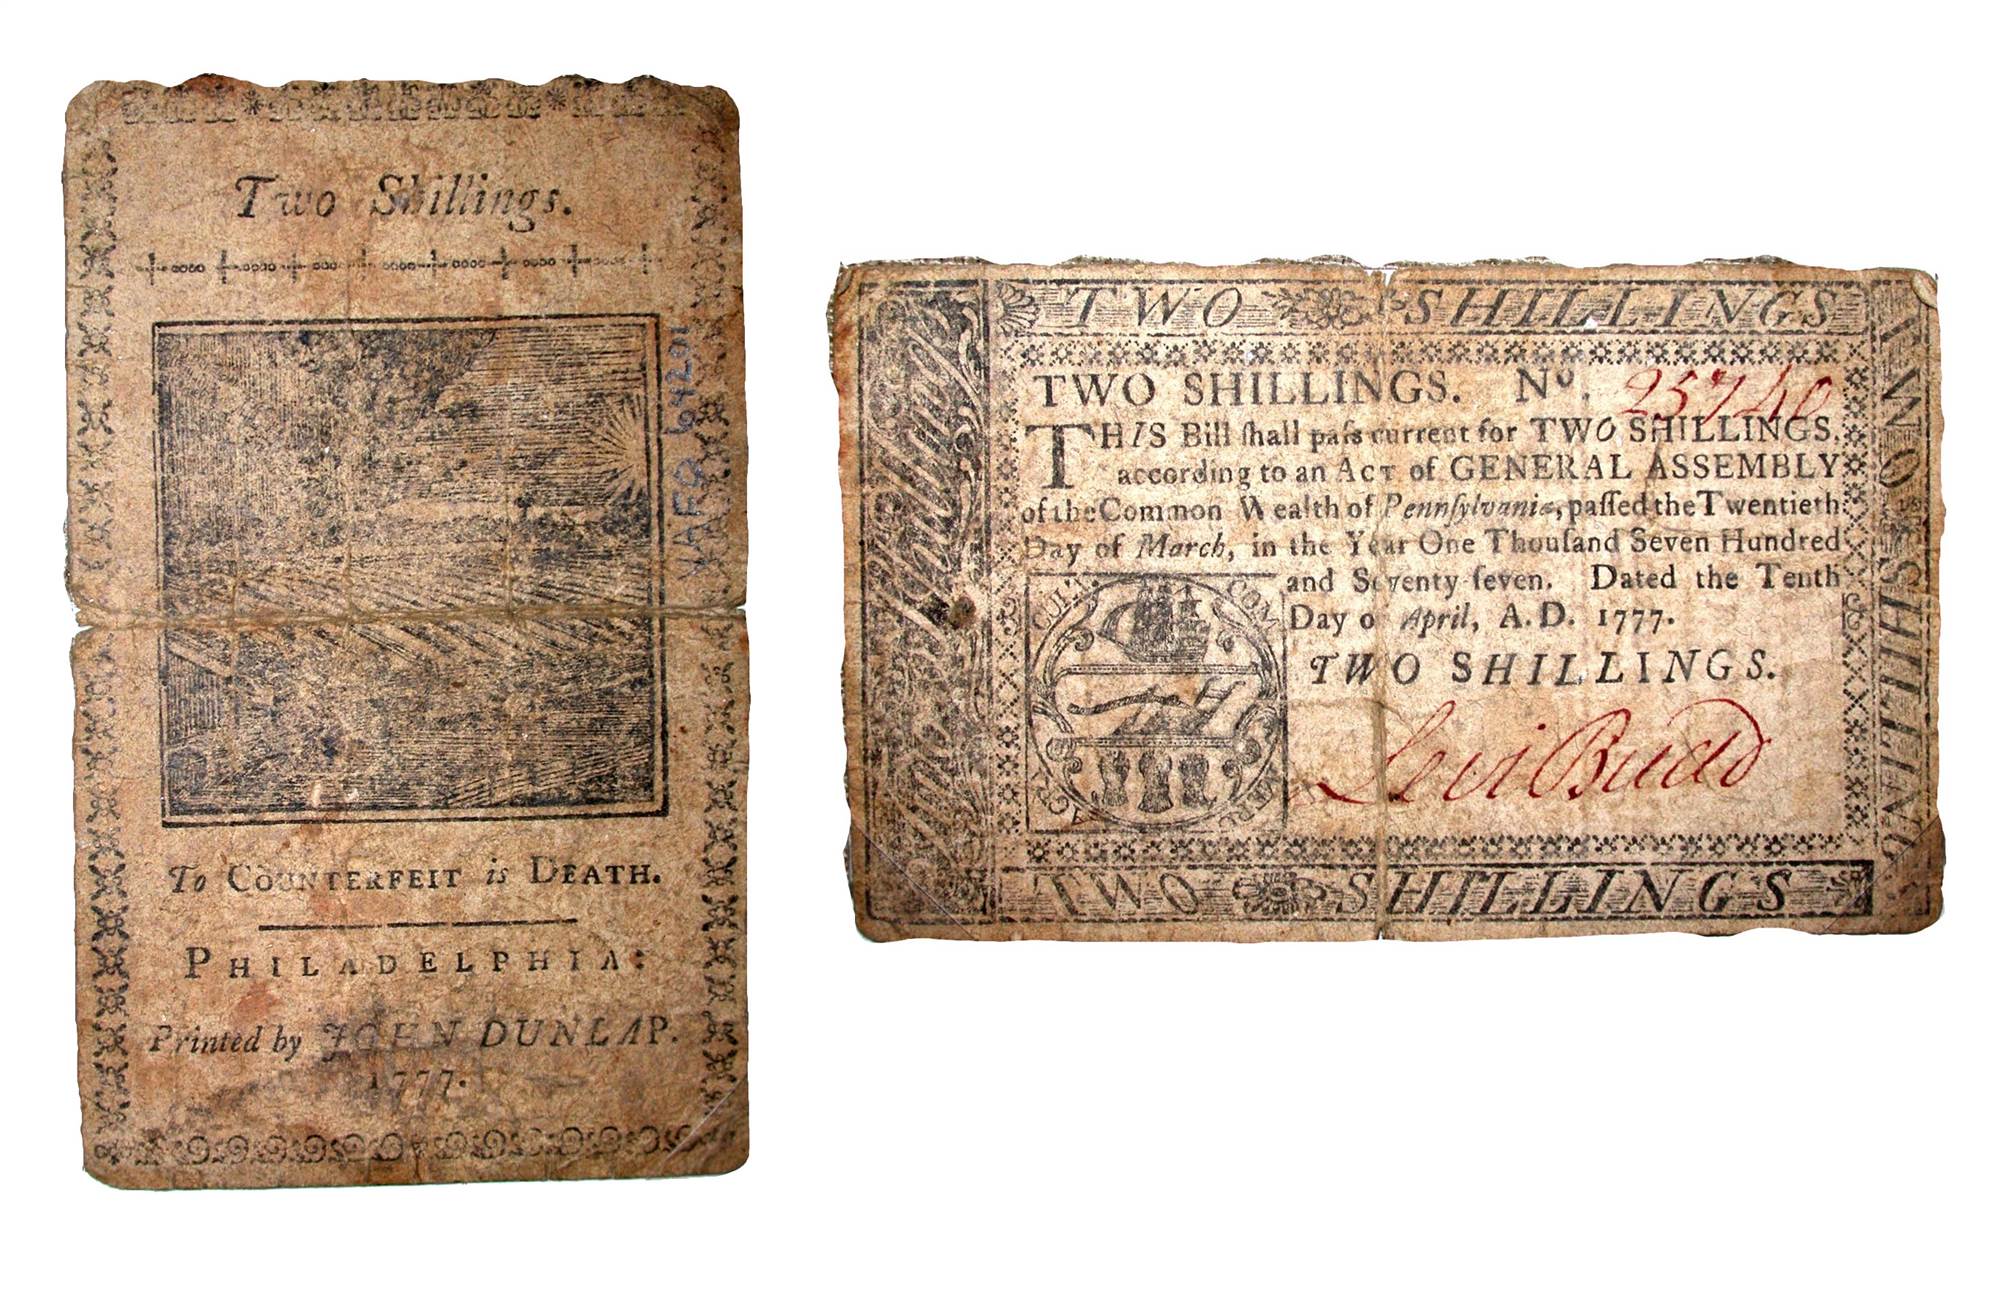 Two Shillings.
To COUNTERFEIT is DEATH.
PHILADELPHIA:
Printed by JOHN DUNLAP.
1777.
VAFB 64201
TWO SHILLINGS
TWO SHILLINGS. No. 25740
THIS Bill ſhall paſs current for TWO SHILLINGS,
according to an ACT of GENERAL ASSEMBLY
of the Common Wealth of Pennſylvania, paſſed the Twentieth
Day of March, in the Year One Thouſand Seven Hundred
and Seventy-ſeven. Dated the Tenth
Day of April, A.D. 1777.
TWO SHILLINGS.
Levi Budd
TWO SHILLINGS
Two Shillings
TWO SHILLINGS